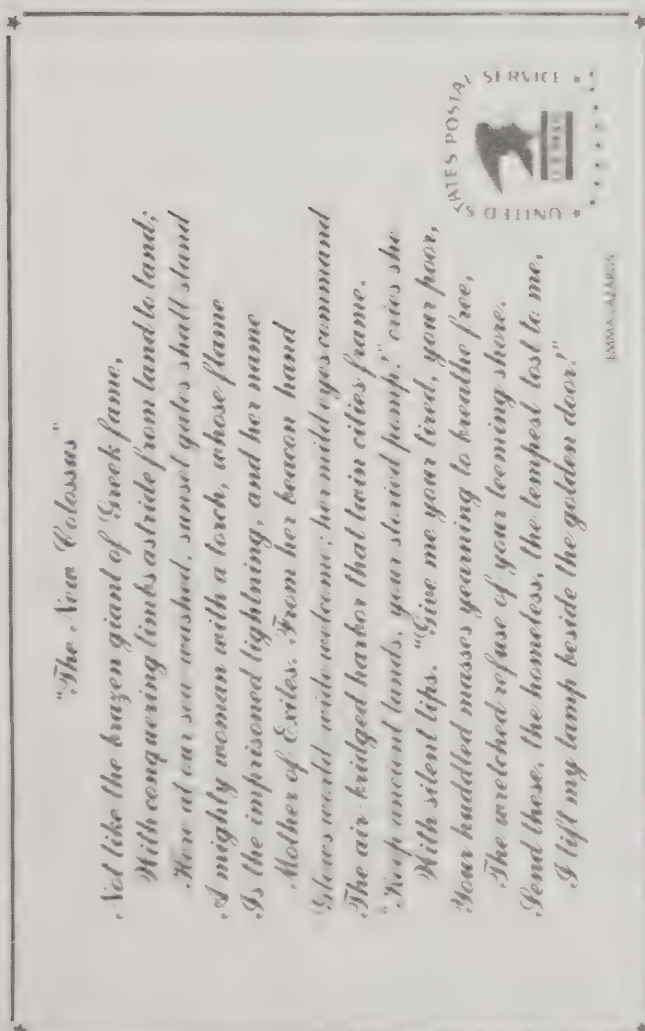 "The New Colossus"
Not like the brazen giant of Greek fame,
With conquering limbs astride from land to land;
Here at our sea-washed, sunset gates shall stand
A mighty woman with a torch, whose flame
Is the imprisoned lightning, and her name
Mother of Exiles. From her beacon hand
Glows world-wide welcome; her mild eyes command
The air-bridged harbor that twin cities frame.
"Keep ancient lands, your storied pomp!" cries she
With silent lips. "Give me your tired, your poor,
Your huddled masses yearning to breathe free,
The wretched refuse of your teeming shore.
Send these, the homeless, the tempest tost to me,
I lift my lamp beside the golden door!"
EMMA LAZARUS
UNITED STATES POSTAL SERVICE
U.S. MAIL